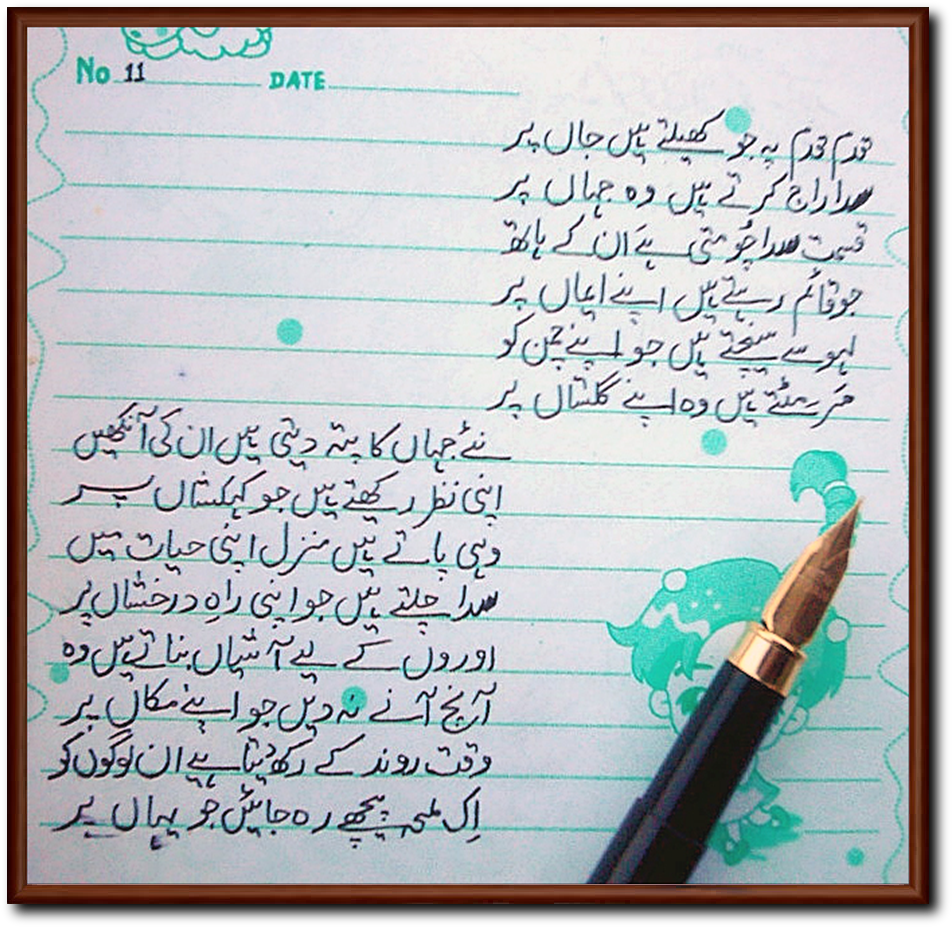 No 11 DATE
قدم قدم پہ جو کھیلتے ہیں جاں پر
سدا راج کرتے ہیں وہ جہاں پر
قسمت سدا چُومتی ہے ان کے ہاتھ
جو قائم رہتے ہیں اپنے ایماں پر
لہو سے سینچتے ہیں جو اپنے چمن کو
مَر مٹتے ہیں وہ اپنے گلستاں پر
نئے جہاں کا پتہ دیتی ہیں ان کی آنکھیں
اپنی نظر رکھتے ہیں جو کہکشاں پر
وہی پاتے ہیں منزل اپنی حیات میں
سدا چلتے ہیں جو اپنی راہِ درخشاں پر
اوروں کے لیے آشیاں بناتے ہیں وہ
آنچ آنے نہ دیں جو اپنے مکاں پر
وقت روند کے رکھ دیتا ہے ان لوگوں کو
اِک لمحہ پیچھے رہ جائیں جو یہاں پر